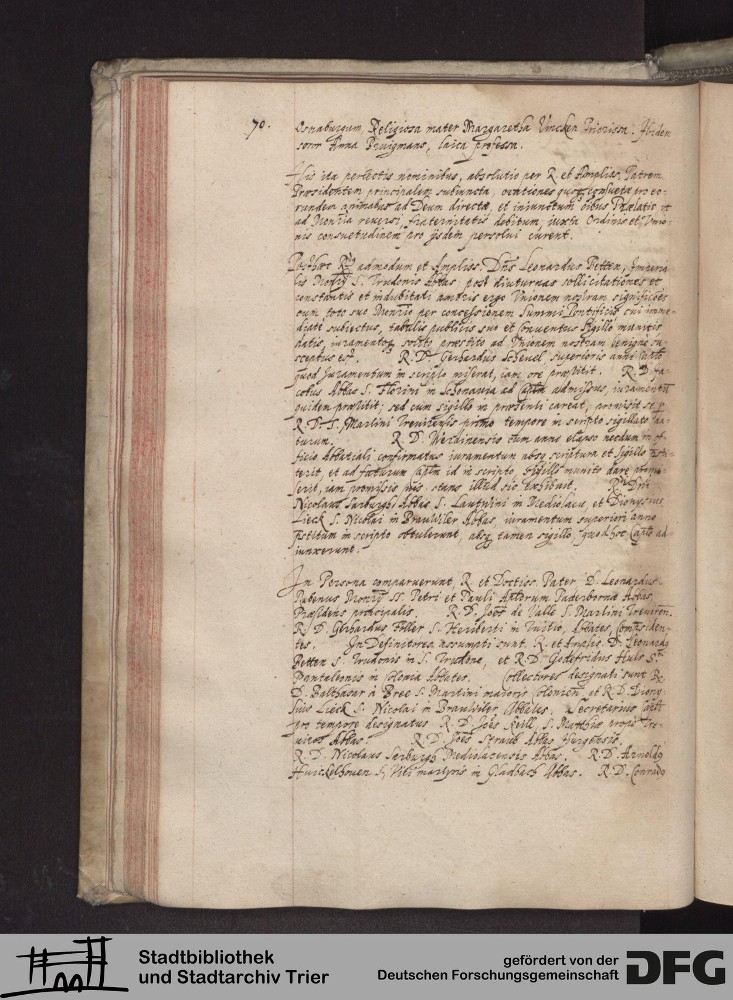 70. Osnaburgum, Religiosa mater Margaretha Vincken Priorissa. Ibidem
soror Anna Bruigmans, laica professa.
His ita perlectis nominibus, absolutio per R. et Ampliss. Patrem
Praesidentem principalem subiuncta, orationes quoque consuetae pro eo-
rundem animabus ad Deum directae, et iniunctum oibus Praelatis ut
ad Monria reversi, fraternitatis debitum, iuxta Ordinis et Unio-
nis consuetudinem pro ijsdem persolui curent.
Posthaec admodum et Ampliss. Dns Leonardus Betten, Imperia-
lis Monrij S. Trudonis Abbas, post diuturnas sollicitationes et
constantis et indubitati amoris erga Unionem nostram significoes
cum toto suo Monrio per concessionem Summi Pontificis cui imme-
diate subiectus, tabulis publicis suo et Conventus sigillo munitis
datis, iuramento solito praestito ad Unionem nostram benigne su-
sceptus est. R. D. Gerhardus Schenel superioris anni Caplo
quod Iuramentum in scripto miserat, iam ore praestitit. R. D. Ia-
cobus Abbas S. Florini in Schonavia ad Caplm admissus, iuramentum
quidem praestitit; sed cum sigillo in praesenti careat, promisit se p
R. D. S. Martini Trevirensis primo tempore in scripto sigillato da-
turum. R. D. Werdinensis cum anno elapso necdum in of-
ficio Abbatiali confirmatus iuramentum absq scriptura et sigillo
terit, et ad futurum Caplm id in scripto, sigillo munito dare promi-
serit, iam promissis stans illud sic exhibuit. R. Dni
Nicolaus Sarburgh Abbas S. Lautwini in Mediolacu, et Dionysius
Lieck S. Nicolai in Brauwiler Abbas, iuramentum superiori anno
in scripto obtulerunt, absq tamen sigillo, quod hoc Caplo ad-
iunxerunt.
In Persona comparuerunt R. et Doctiss. Pater D. Leonardus
Rubenus Monrij SS. Petri et Pauli Aplorum Paderbornae Abbas,
Praesidens principalis. R. D. Joes de Valle S. Martini Treviren.
R. D. Gerhardus Voller S. Heriberti in Tuitio, Abbates, Compraesiden-
tes. In Definitores assumpti sunt R. et Ampliss. D. Leonardus
Betten S. Trudonis in S. Trudone, et R. D. Godefridus Huls S.ti
Pantaleonis in Colonia Abbates. Collectores designati sunt R.
D. Balthasar à Bree S. Martini maioris Colonien. et R. D. Diony-
sius Lieck S. Nicolai in Brauwiler Abbates. Secretarius Capli
pro tempore designatus R. D. Joes Keill, S. Matthiae prope Tre-
viros Abbas. R. D. Joes Straub Abbas Hugensis.
R. D. Nicolaus Sarburgh Mediolacensis Abbas. R. D. Arnoldus
Huickelhoven S. Viti martyris in Gladbach Abbas. R. D. Conradus
Stadtbibliothek
und Stadtarchiv Trier
gefördert von der
Deutschen Forschungsgemeinschaft
DFG